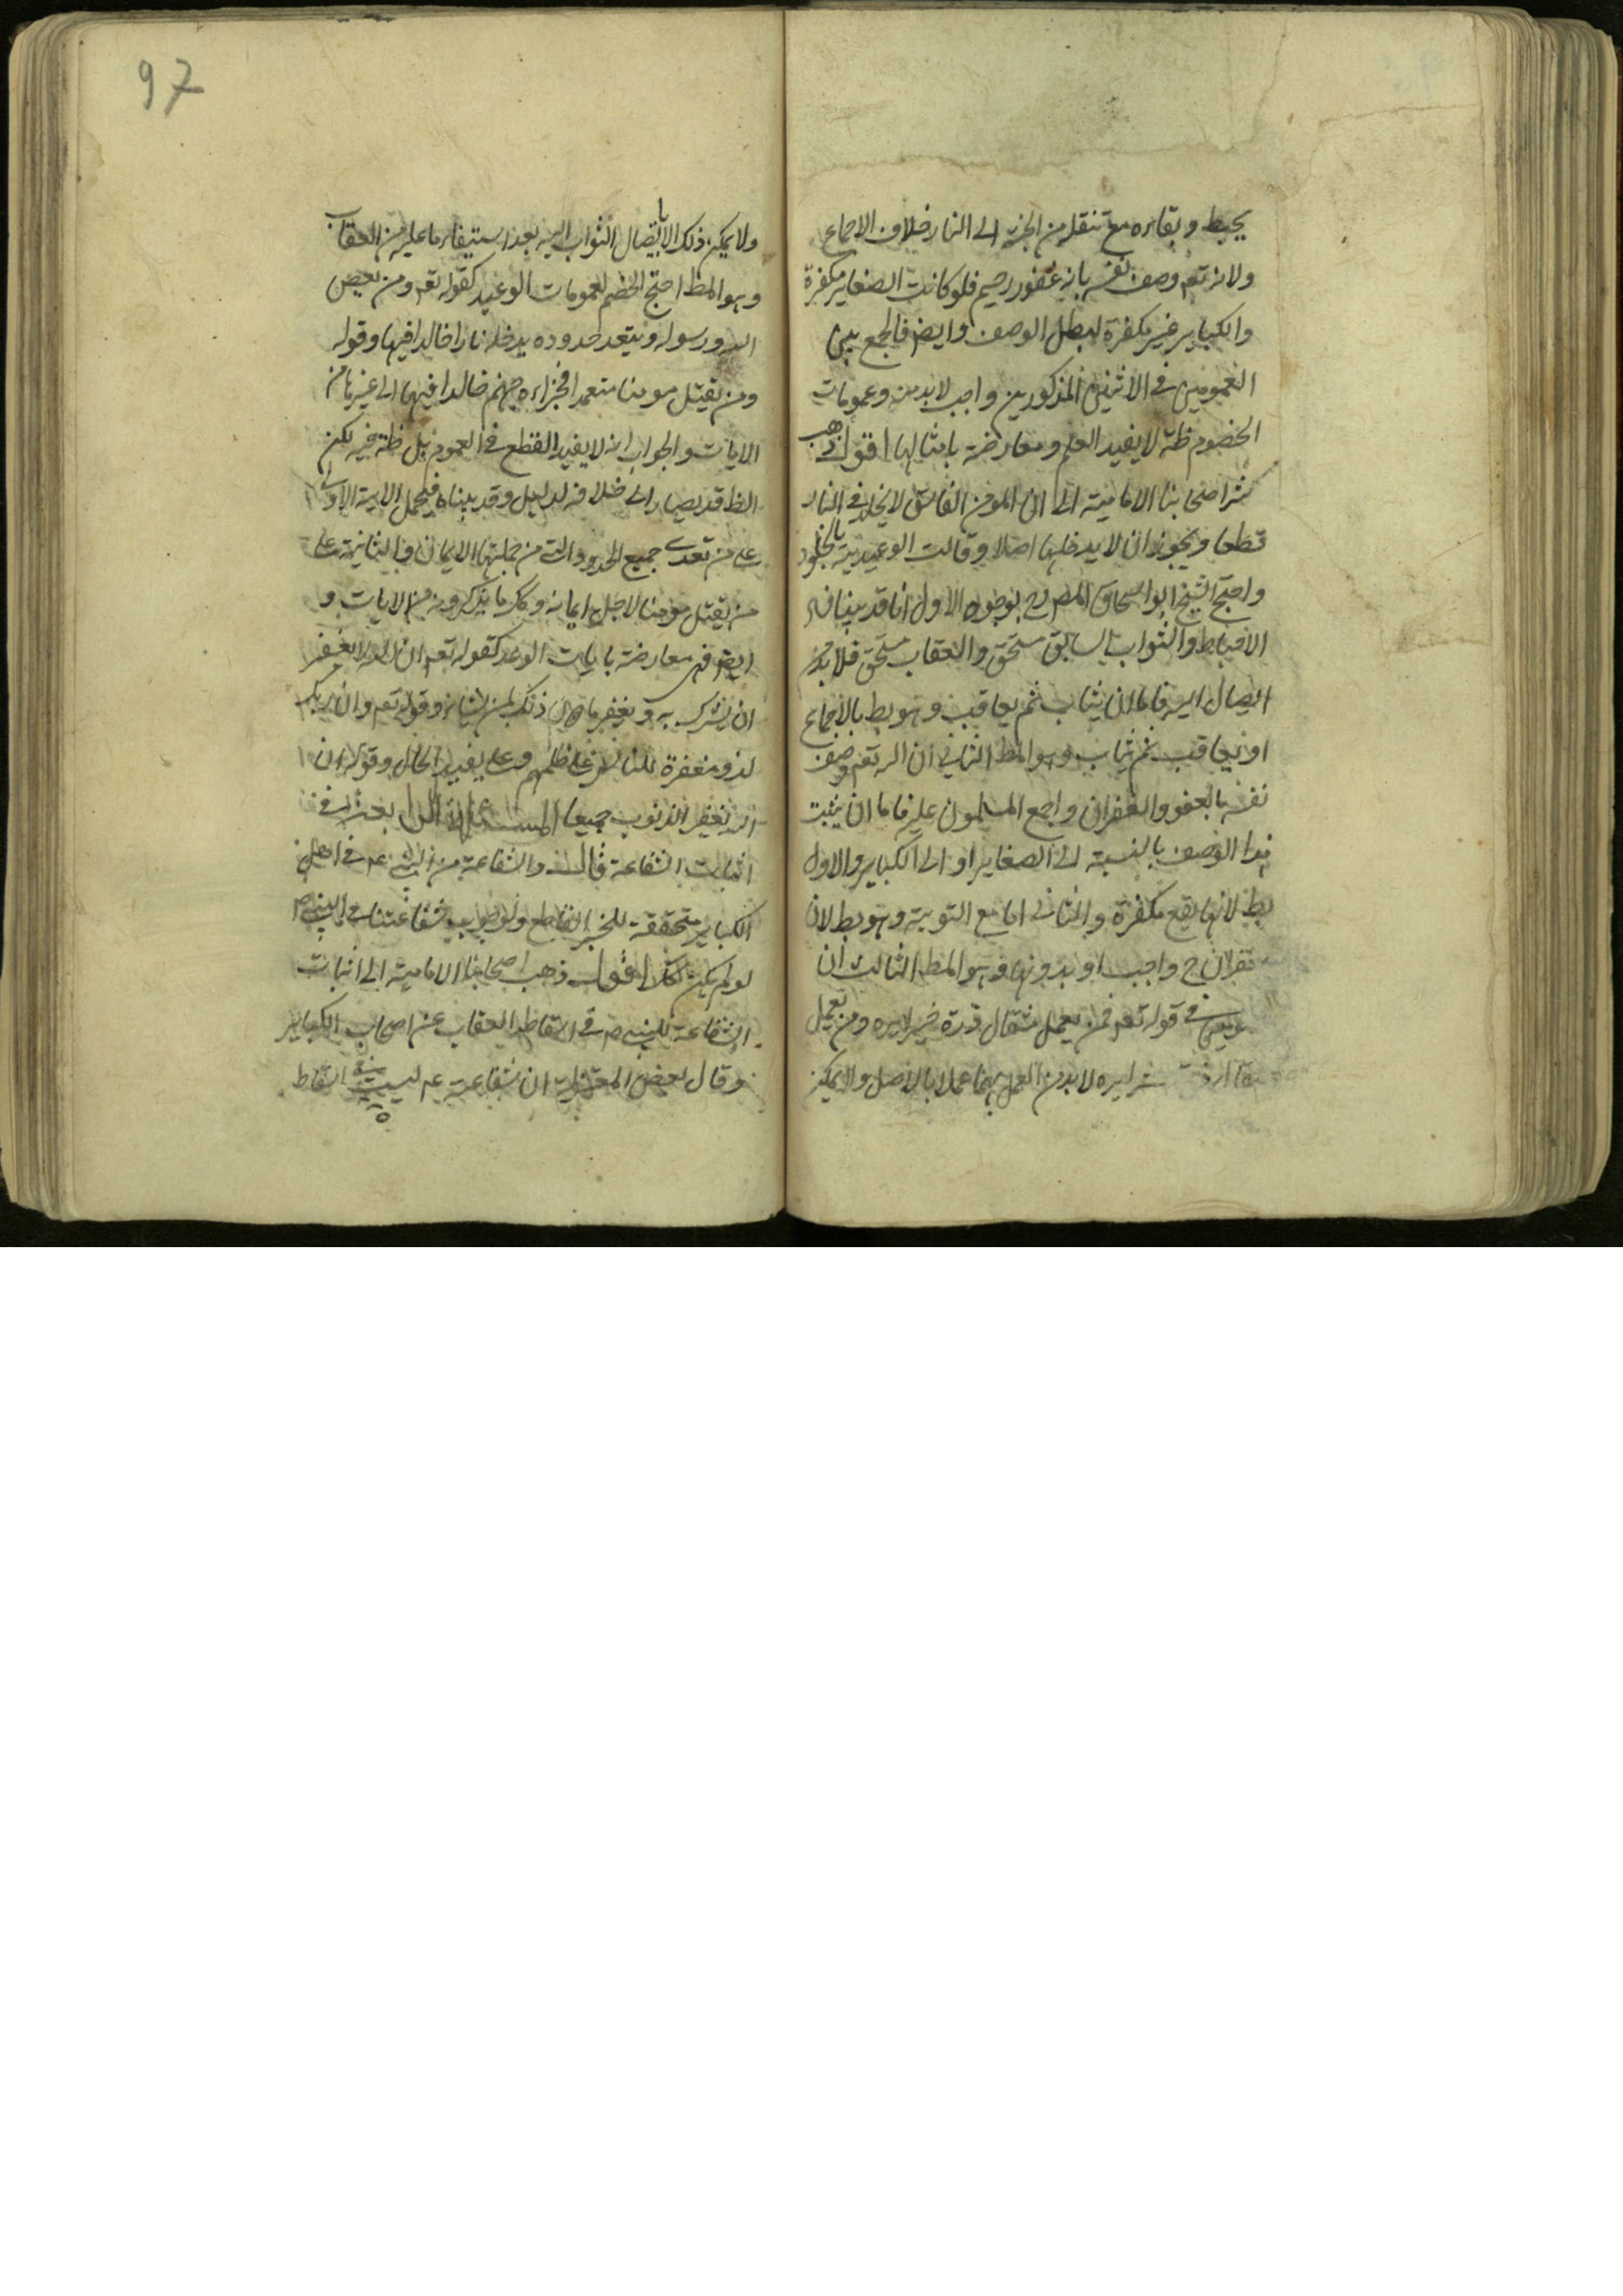 يحبط وبقاءه مع تنقله من الجنة الى النار خلاف الاجماع
ولانه تعم وصف نفسه بانه غفور رحيم فلو كانت الصغاير مكفرة
والكباير غير مكفرة لبطل الوصف وايض فالجمع بين
العمومين في الاثنين المذكورين واجب لابد منه وعمومات
الخصوم ظنه لا يفيد العلم ومعارضة بامثالها اقول ذهب
اصحابنا الامامية الى ان المومن الفاسق لا يخلد في النار
قطعا ويجوز ان لا يدخلها اصلا وقالت الوعيدية بالخلود
واحتج الشيخ ابو اسحاق المصره بوجوه الاول انا قد بينا نفى
الاحباط والثواب السابق مستحق والعقاب مستحق فلابد من
ايصال اليه فاما ان يثاب ثم يعاقب وهو بط بالاجماع
او يعاقب ثم يثاب وهو المط الثاني ان الله تعم وصف
نفسه بالعفو والغفران واجمع المسلمون عليه فاما ان يثبت
هذا الوصف بالنسبة الى الصغاير او الى الكباير والاول
بط لانها يقع مكفرة والثاني اما مع التوبة وهو بط لان
الغفران ح واجب او بدونها وهو المط الثالث ان
في قوله تعم فمن يعمل مثقال ذرة خيرا يره ومن يعمل
شرا يره لابد من العمل بهما عملا بالاصل ولا يمكن
97
ولا يمكن ذلك الا بايصال الثواب اليه بعد استيفاء ما عليه من العقاب
وهو المط احتج الخصم لعمومات الوعيد كقوله تعم ومن يعص
الله ورسوله ويتعد حدوده يدخله نارا خالدا فيها وقوله
ومن يقتل مومنا متعمدا فجزاءه جهنم خالدا فيها الى غيرها من
الايات والجواب انه لا يفيد القطع في العموم بل ظنه فيه لكن
الظ قد يصار الى خلافه لدليل وقد بيناه فيحمل الاية الاولى
على من تعدى جميع الحدود التي من جملتها الايمان والثانية على
من يقتل مومنا لاجل ايمانه وكذا ما يذكرونه من الايات و
ايض فهي معارضة بايات الوعد كقوله تعم ان الله لا يغفر
ان يشرك به ويغفر ما دون ذلك لمن يشاء وقوله تعم وان ربك
لذو مغفرة للناس على ظلمهم وعلى يفيد الحال وقوله ان
الله يغفر الذنوب جميعا المسئلة بحث في
اثبات الشفاعة قال والشفاعة من النبي عم في اهل
الكباير متحققة للخبر القاطع ولوجوب شفاعتنا في النبي ص
لو لم يكن كذلك اقول ذهب اصحابنا الامامية الى اثبات
الشفاعة للنبي ص في اسقاط العقاب عن اصحاب الكباير
وقال بعض المعتزلة ان شفاعته عم ليست اسقاط